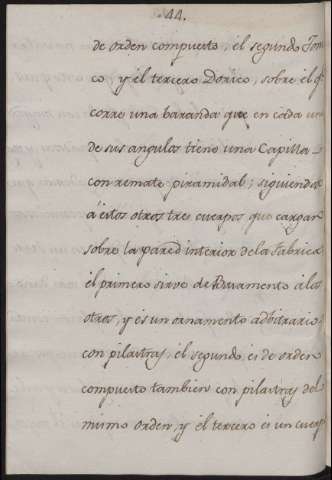 44.
de orden compuesto, el segundo Jon
co, y el tercero Dorico, sobre el q.e
corre una baranda que en cada uno
de sus angulos tiene una Capilla
con remate piramidal; siguiendose
a éstos otros tres cuerpos que cargan
sobre la pared interior de la Fabrica
el primero sirve de Basamento á los
otros, y és un ornamento adbitrario
con pilastras, él segundo, es de orden
compuesto tambien con pilastras del
mismo orden, y él tercero és un cuerp